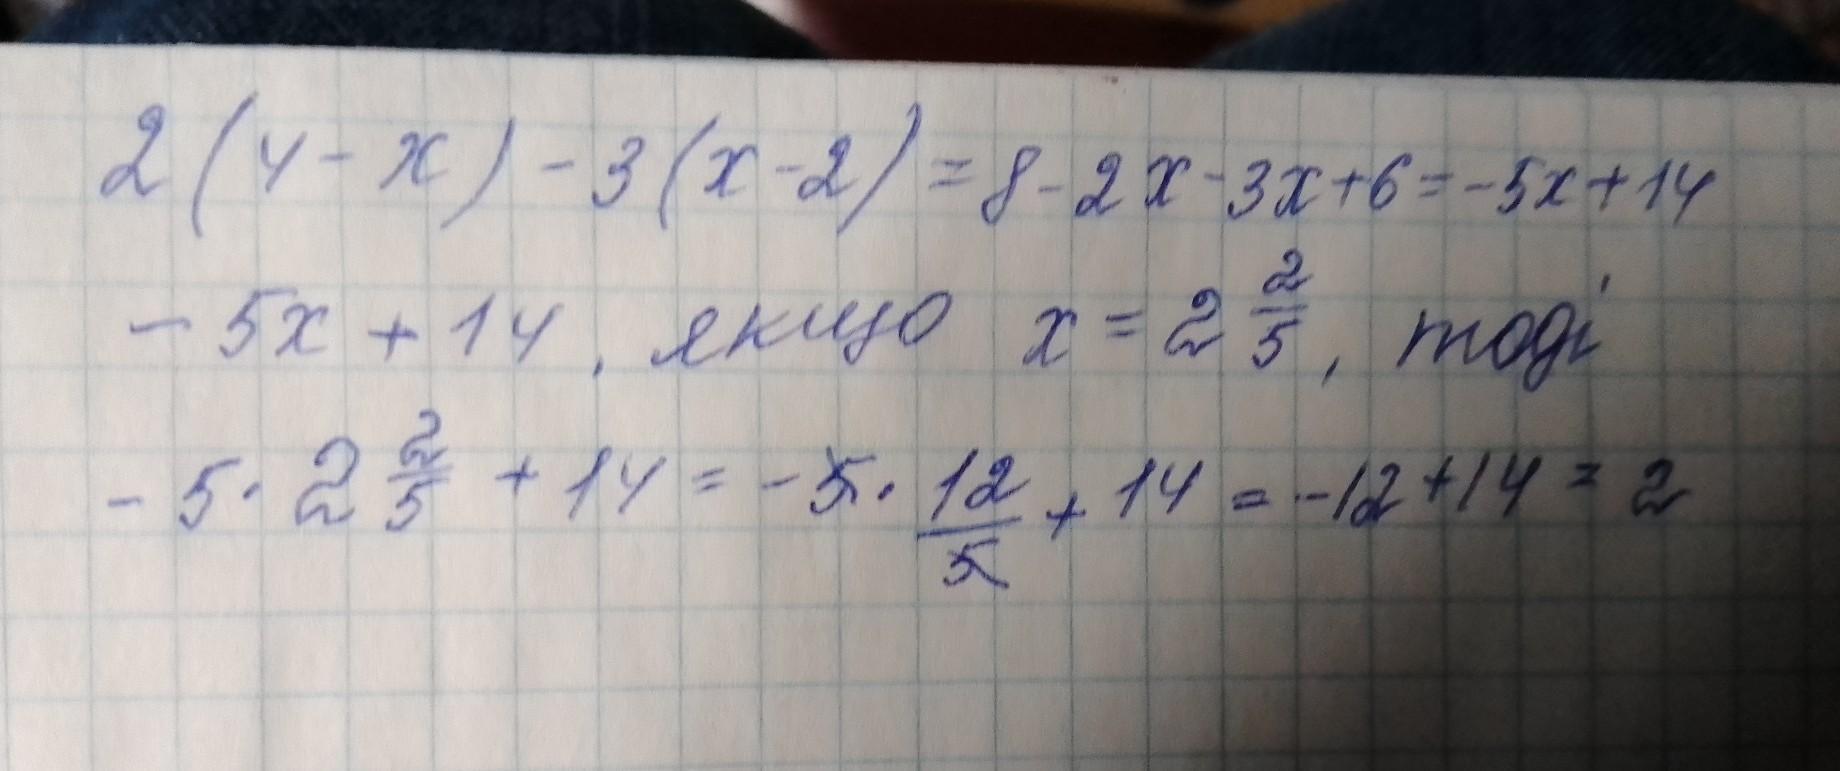 2(4-x)-3(x-2)=8-2x-3x+6=-5x+14
-5x+14, якщо x=2 2/5, тоді
-5·2 2/5+14=-5·12/5+14=-12+14=2